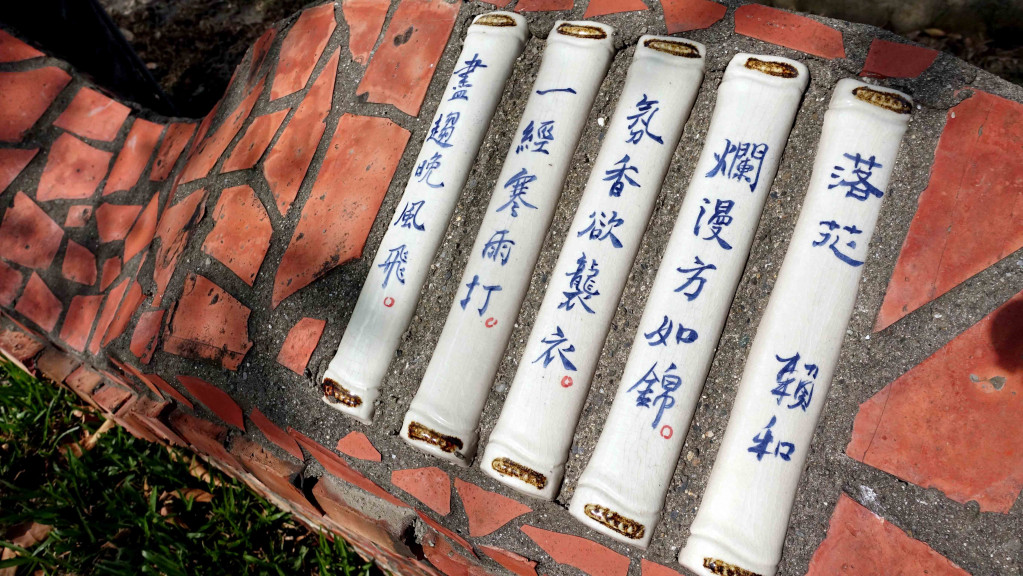 落花 賴和
爛漫方如錦。
氛香欲襲衣。
一經寒雨打。
盡趨晚風飛。